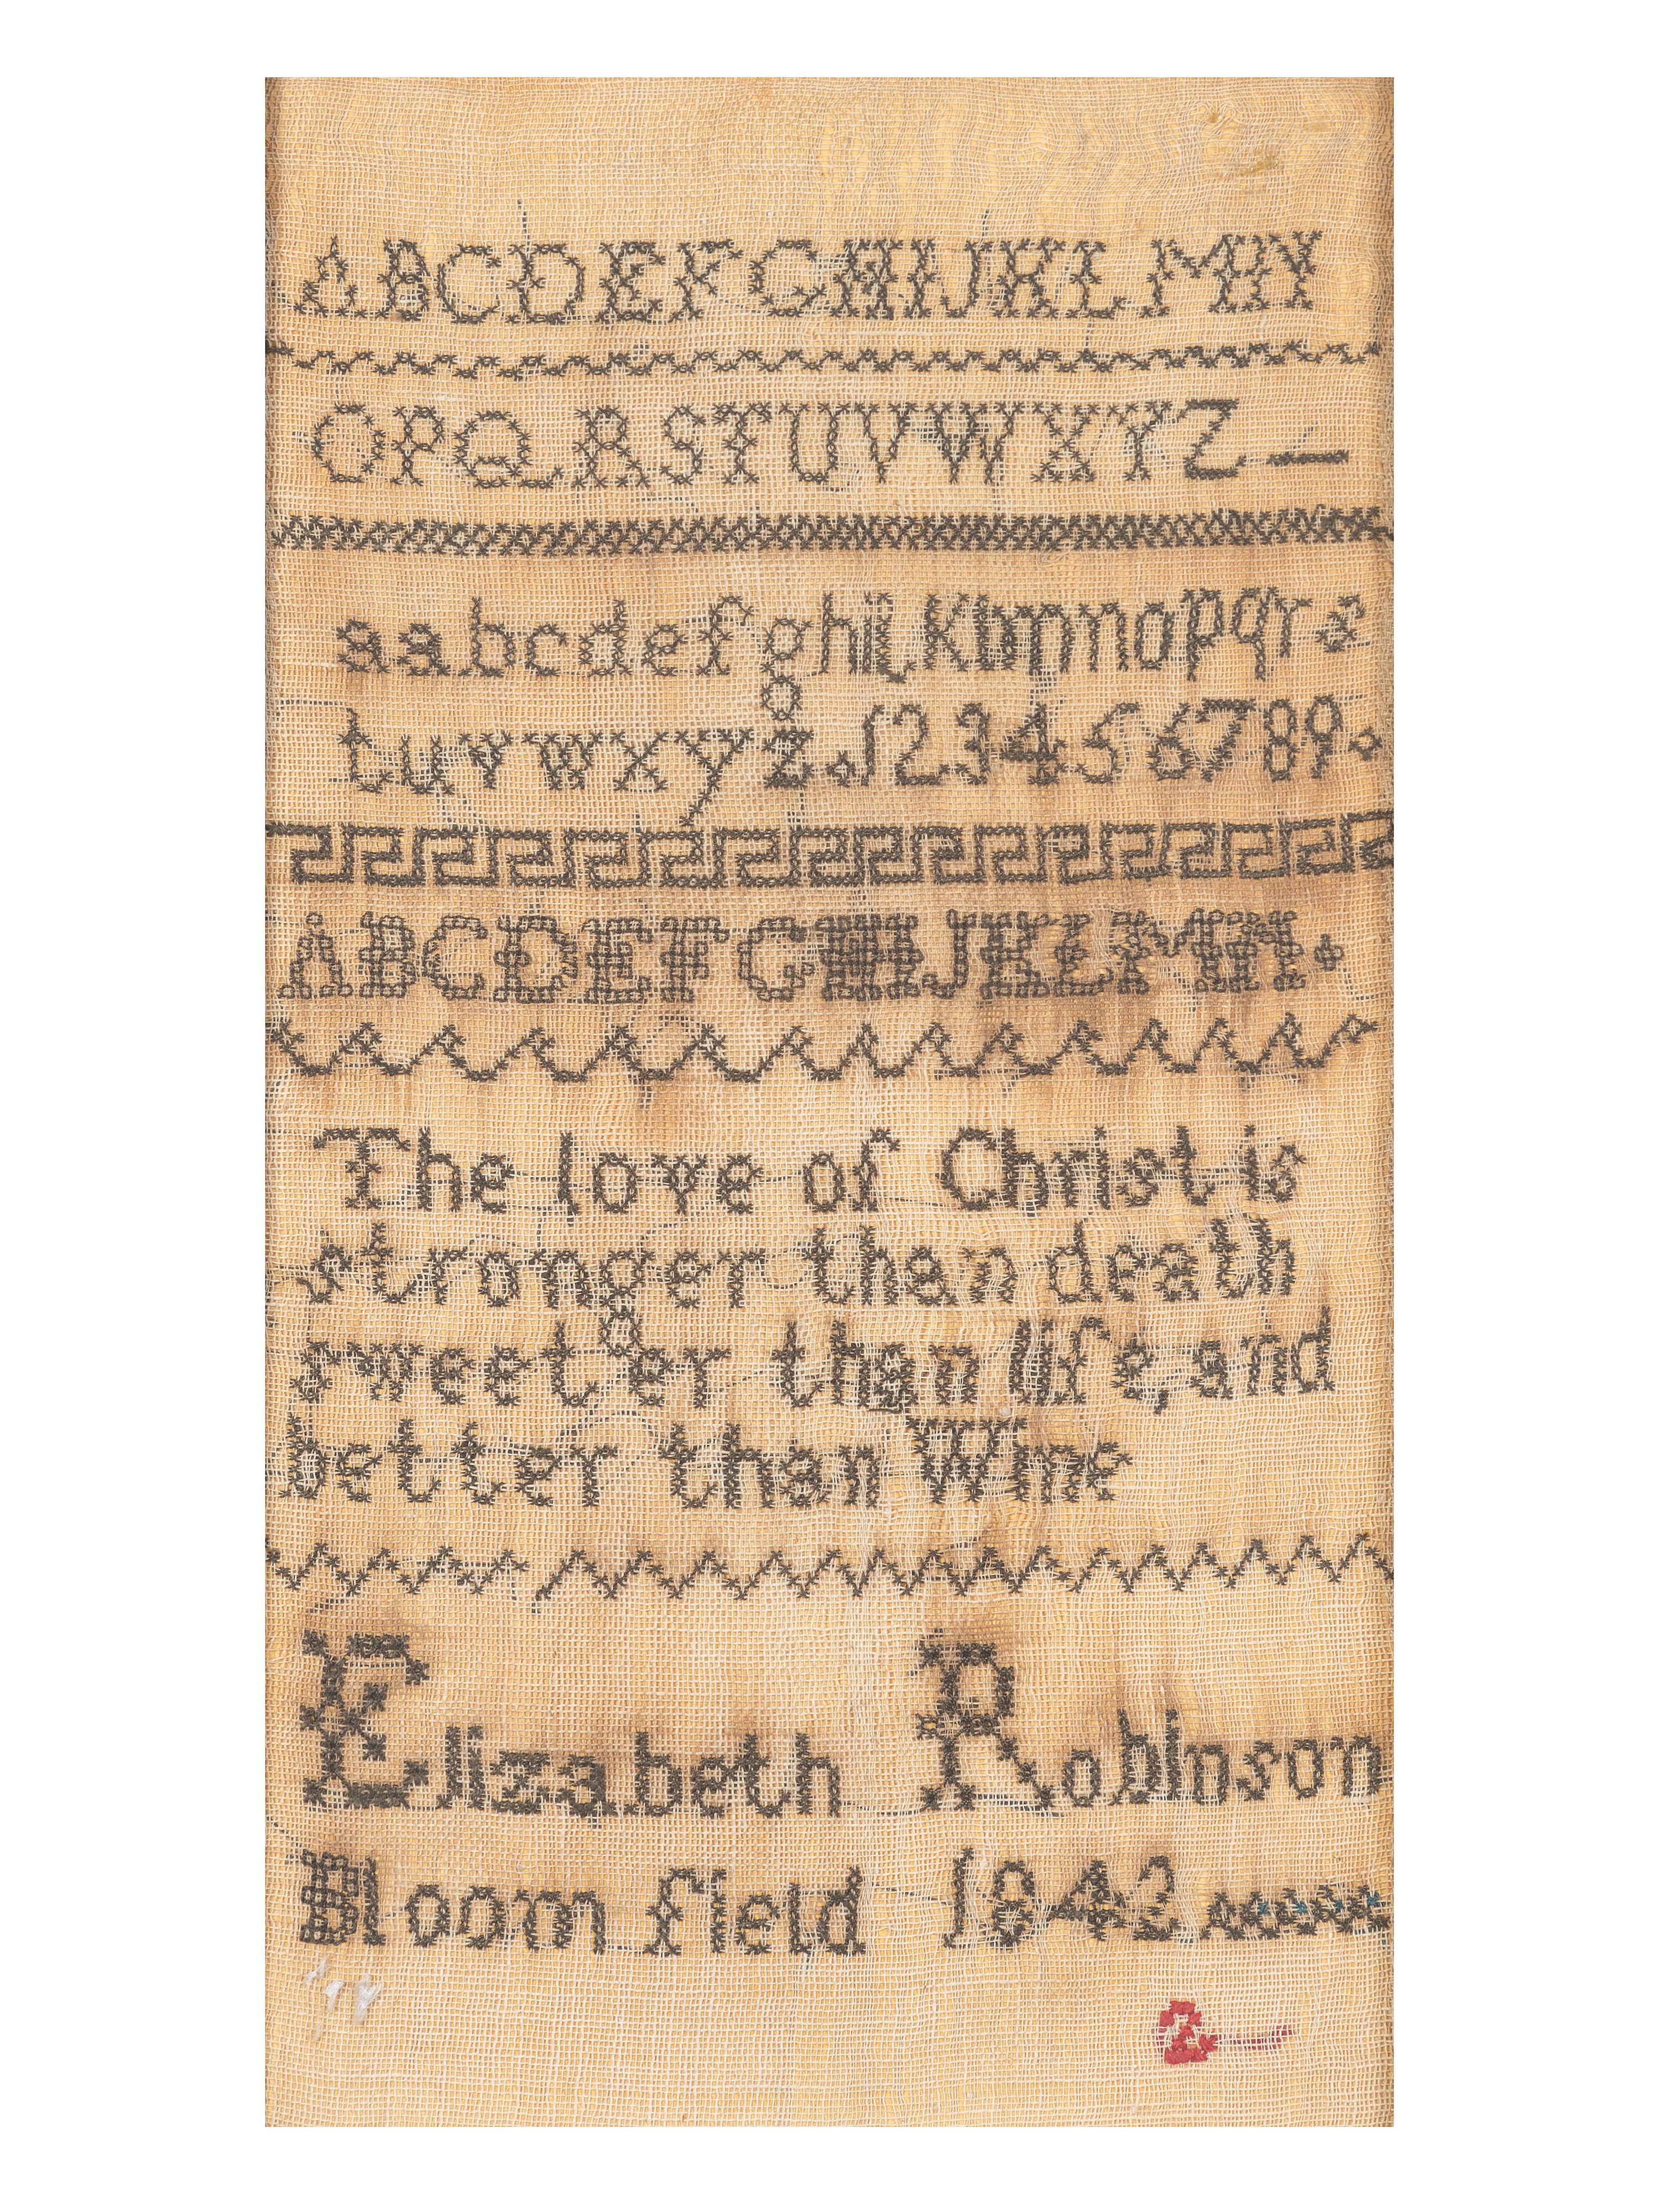 ABCDEFGHIJKLMN
OPQRSTUVWXYZ
aabcdefghijklmnopqrs
tuvwxyz.123456789.
ABCDEFGHIJKLMN.
The love of Christ is
stronger than death
sweeter than life, and
better than Wine
Elizabeth Robinson
Bloomfield 1842